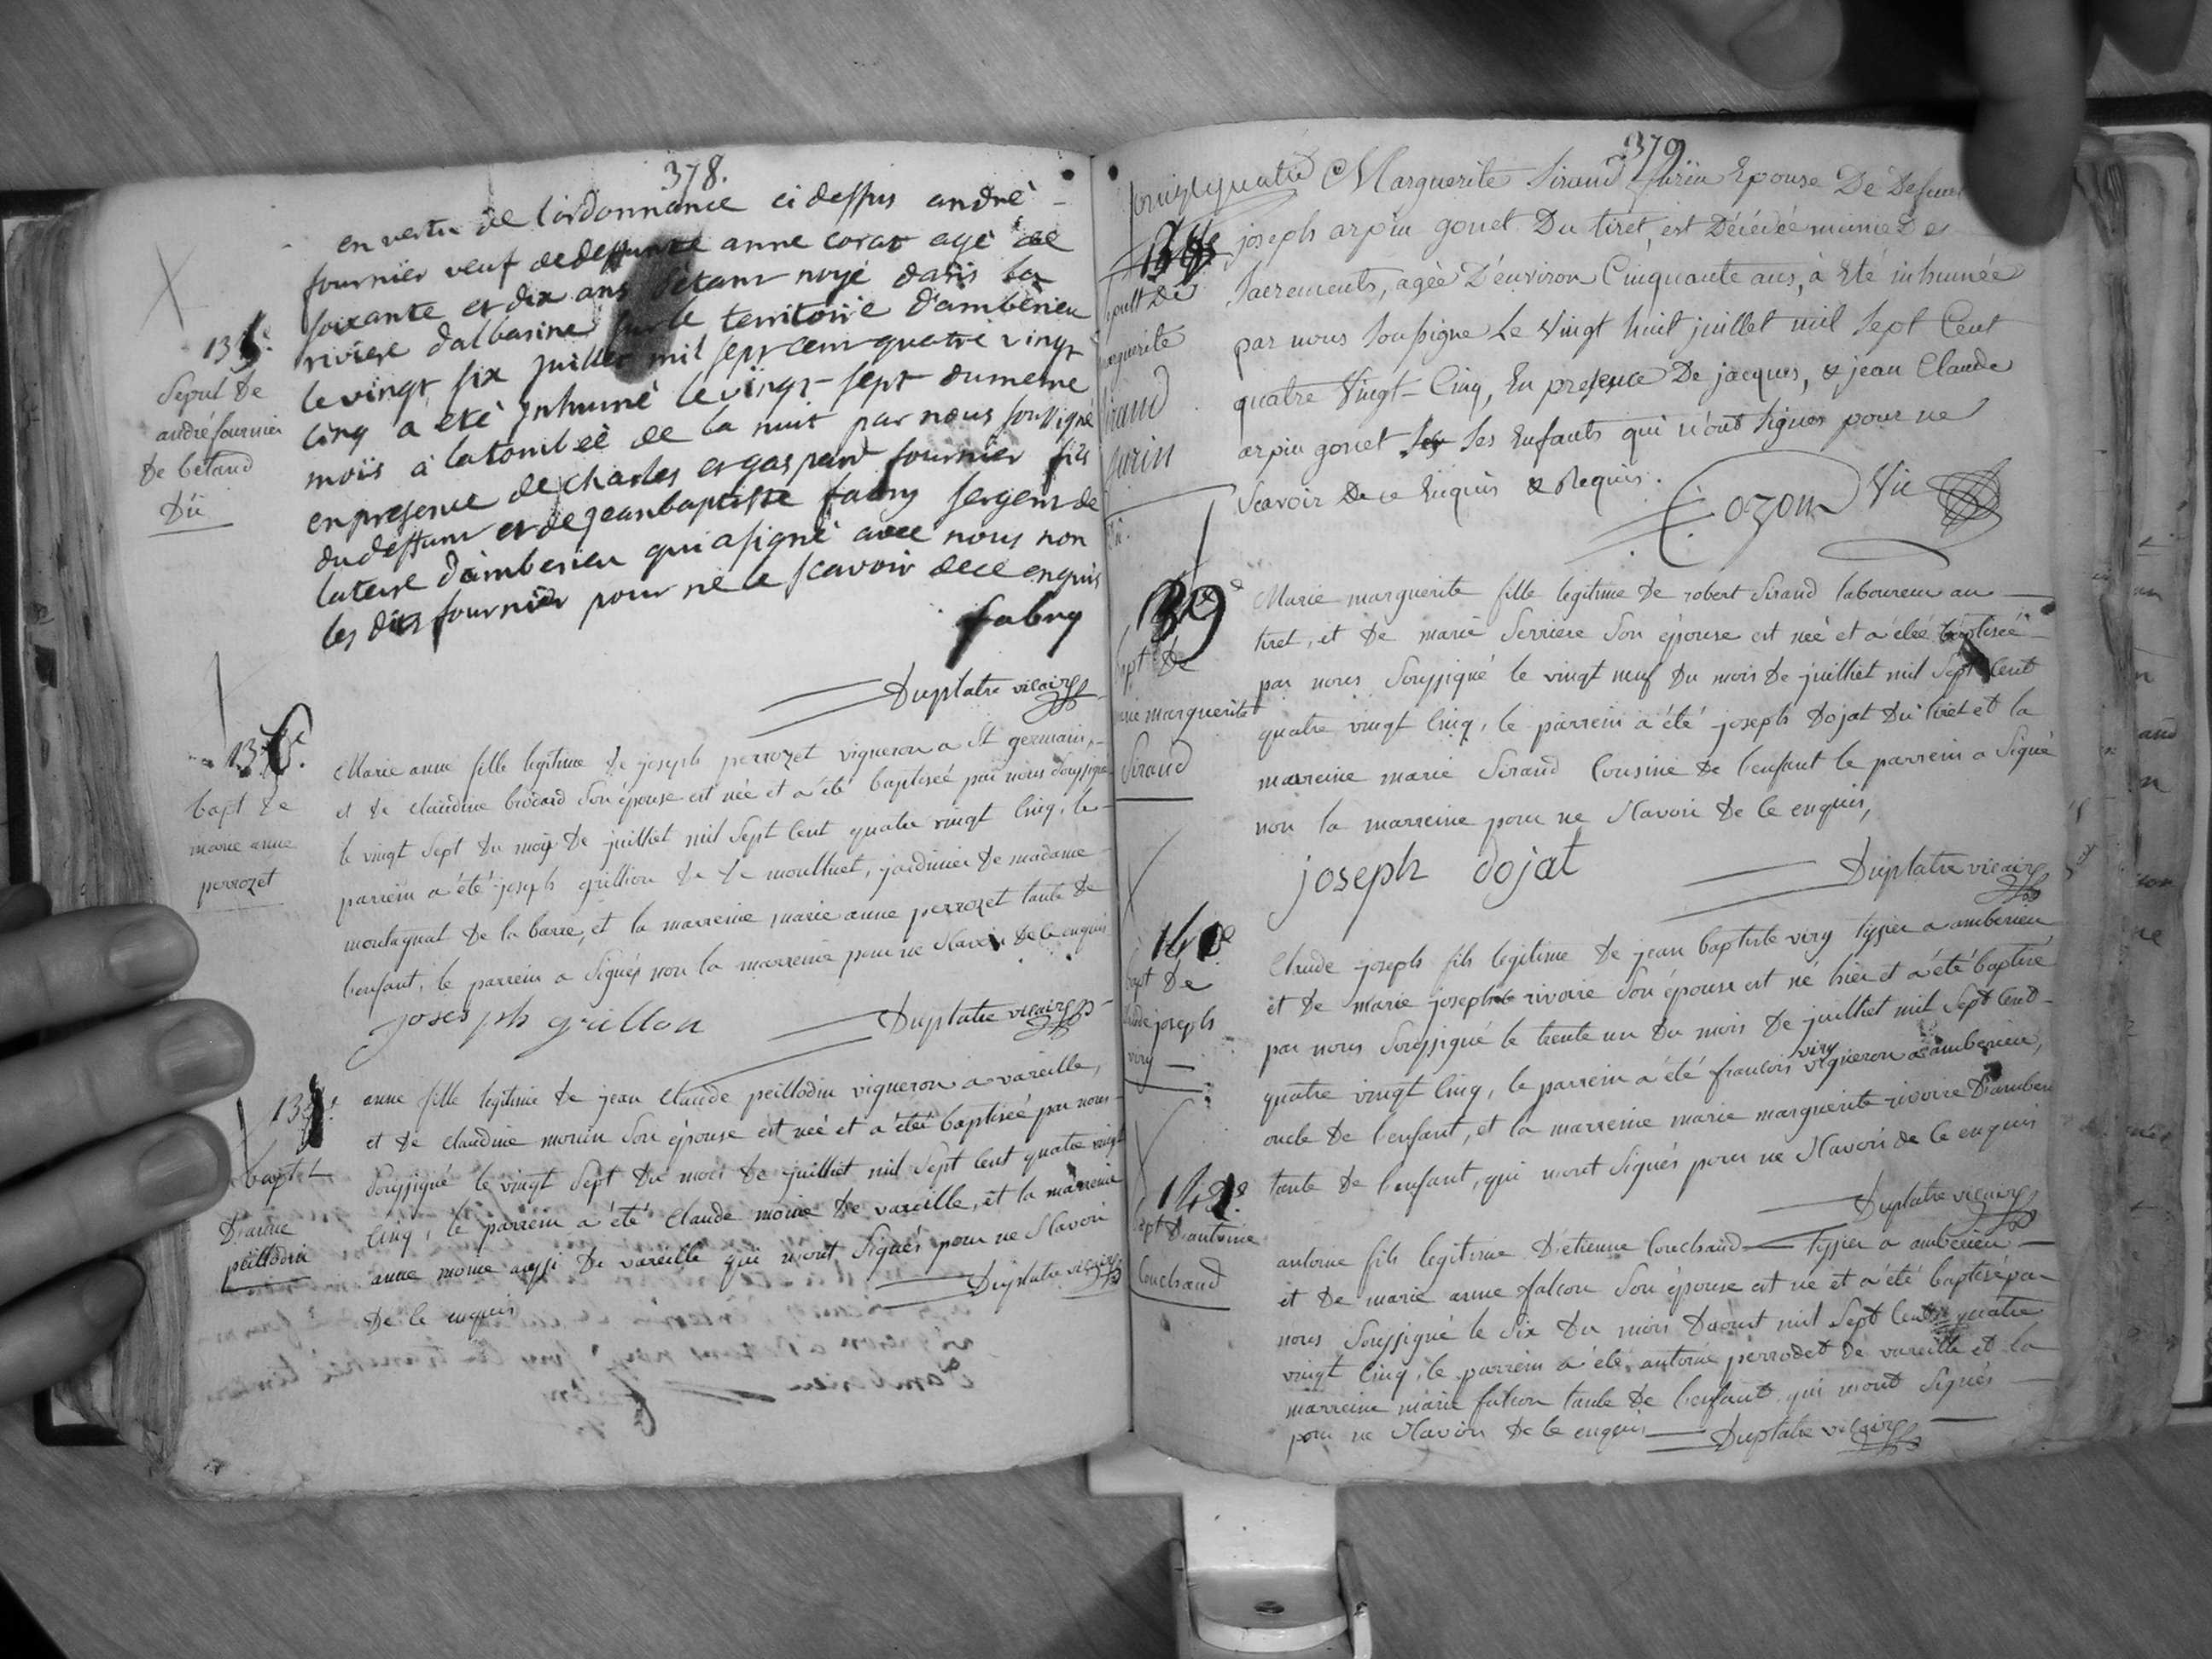 378.
en vertu de l'ordonnance ci dessus andré
fournier veuf de deffunte anne corat agé de
soixante et dix ans s'étant noyé dans la
riviere d'albarine sur le territoire d'ambérieu
le vingt six juillet mil sept cent quatre vingt
cinq a eté inhumé le vingt-sept du meme
mois à la tombeé de la nuit par nous soussigné
en presence de charles et gaspard fournier fils
du deffunt et de jean baptiste fabry sergent de
la terre d'amberieu qui a signé avec nous non
les dits fournier pour ne le scavoir de ce enquis
fabry
Duplatre vicaire
Sepul de
andré fournier
de betand
Dû
136e.
bapt de
marie anne
perrozet
Marie anne fille legitime de joseph perrozet vigneron a St germain,
et de claudine brodard son épouse est neé et a été baptiseé par nous soussigné
le vingt sept du mois de juilliet mil sept cent quatre vingt cinq, le
parrein a été joseph grillion de de montluet, jardinier de madame
montagnat de la barre, et la marreine marie anne perrozet tante de
l'enfant, le parrein a signés non la marreine pour ne scavoir de ce enquis
joseph grillon
Duplatre vicaire
bapt
D'anne
peillodin
anne fille legitime de jean claude peillodin vigneron a vareille,
et de claudine monin son épouse est neé et a été baptiseé par nous
soussigné le vingt sept du mois de juilliet mil sept cent quatre vingt
cinq, le parrein a été claude moine de vareille, et la marreine
anne moine aussi de vareille qui n'ont signés pour ne scavoir
de ce enquis
Duplatre vicaire
379
Marguerite Siraud Jurin Epouse De Defunt
joseph arpin gonet Du tiret, est Décédée munie Des
Sacrements, agée D'environ Cinquante ans, à Eté inhumée
par nous soussigné Le Vingt huit juillet mil Sept Cent
quatre Vingt-Cinq, En presence De jacques, & jean Claude
arpin gonet ses Enfants qui n'ont signés pour ne
Scavoir De ce Enquis & Requis.
Cozon Vic
marguerite
Siraud
jurin
139e
bapt de
marie marguerite
Siraud
Marie marguerite fille legitime de robert Siraud laboureur au
tiret, et de marie Serriere son épouse est neé et a été baptiseé
par nous soussigné le vingt neuf du mois de juilliet mil sept cent
quatre vingt cinq, le parrein a été joseph Dojat du tiret et la
marreine marie Siraud cousine de l'enfant le parrein a signé
non la marreine pour ne scavoir de ce enquis,
joseph dojat
Duplatre vicaire
140e
bapt de
claude joseph
viry
Claude joseph fils legitime de jean baptiste viry tissier a amberieu
et de marie josephte rivoire son épouse est né hier et a été baptisé
par nous soussigné le trente un du mois de juilliet mil sept cent
quatre vingt cinq, le parrein a été francois viry vigneron a amberieu,
oncle de l'enfant, et la marreine marie marguerite rivoire d'amberieu
tante de l'enfant, qui n'ont signés pour ne scavoir de ce enquis
Duplatre vicaire
bapt D'antoine
Couchaud
antoine fils legitime D'etienne Couchaud tissier a amberieu
et de marie anne falcon son épouse est né et a été baptisé par
nous soussigné le six du mois d'aoust mil sept cent quatre
vingt cinq, le parrein a été antoine perrodet de vareille et la
marreine marie falcon tante de l'enfant qui n'ont signés
pour ne scavoir de ce enquis
Duplatre vicaire